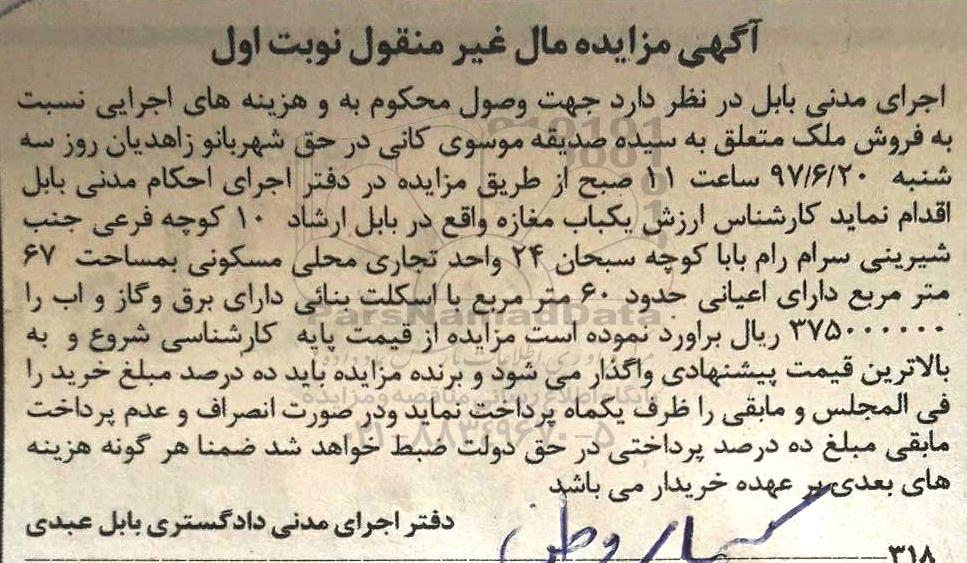 آگهی مزایده مال غیر منقول نوبت اول
اجرای مدنی بابل در نظر دارد جهت وصول محکوم به و هزینه های اجرایی نسبت
به فروش ملک متعلق به سیده صدیقه موسوی کانی در حق شهربانو زاهدیان روز سه
شنبه ۹۷/۶/۲۰ ساعت ۱۱ صبح از طریق مزایده در دفتر اجرای احکام مدنی بابل
اقدام نماید کارشناس ارزش یکباب مغازه واقع در بابل ارشاد ۱۰ کوچه فرعی جنب
شیرینی سرام رام بابا کوچه سبحان ۲۴ واحد تجاری محلی مسکونی بمساحت ۶۷
متر مربع دارای اعیانی حدود ۶۰ متر مربع با اسکلت بنائی دارای برق وگاز و اب را
۳۷۵۰۰۰۰۰۰۰ ریال براورد نموده است مزایده از قیمت پایه کارشناسی شروع و به
بالاترین قیمت پیشنهادی واگذار می شود و برنده مزایده باید ده درصد مبلغ خرید را
فی المجلس و مابقی را ظرف یکماه پرداخت نماید ودر صورت انصراف و عدم پرداخت
مابقی مبلغ ده درصد پرداختی در حق دولت ضبط خواهد شد ضمنا هر گونه هزینه
های بعدی بر عهده خریدار می باشد
دفتر اجرای مدنی دادگستری بابل عبدی
۳۱۸
ParsNamadData
پایگاه اطلاع رسانی مناقصه و مزایده